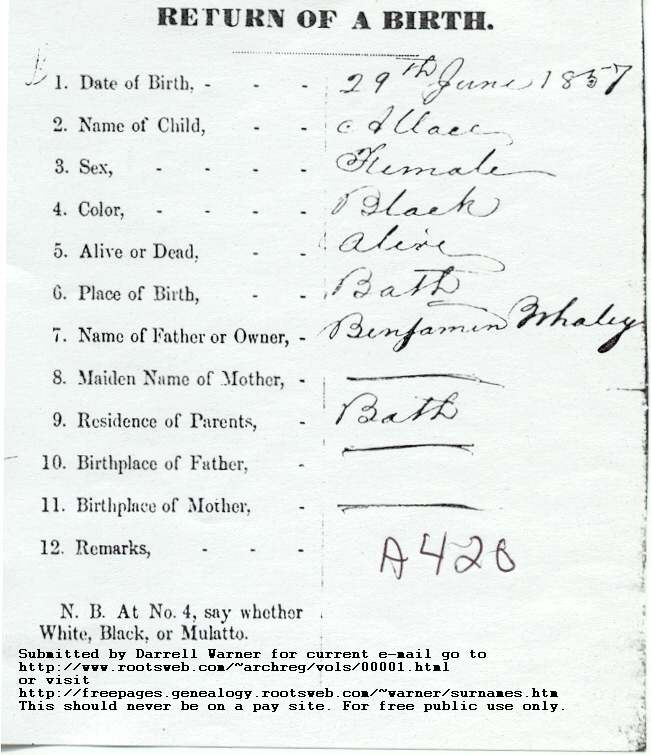 RETURN OF A BIRTH.
1. Date of Birth, - - - 29th June 1857
2. Name of Child, - -
3. Sex, - - - - Female
4. Color, - - - - Black
5. Alive or Dead, - - Alive
6. Place of Birth, - - Bath
7. Name of Father or Owner, - Benjamin Whaley
8. Maiden Name of Mother, -
9. Residence of Parents, - Bath
10. Birthplace of Father, -
11. Birthplace of Mother, -
12. Remarks, - - - A420
N. B. At No. 4, say whether
White, Black, or Mulatto.
Submitted by Darrell Warner for current e-mail go to
http://www.rootsweb.com/~archreg/vols/00001.html
or visit
http://freepages.genealogy.rootsweb.com/~warner/surnames.htm
This should never be on a pay site. For free public use only.